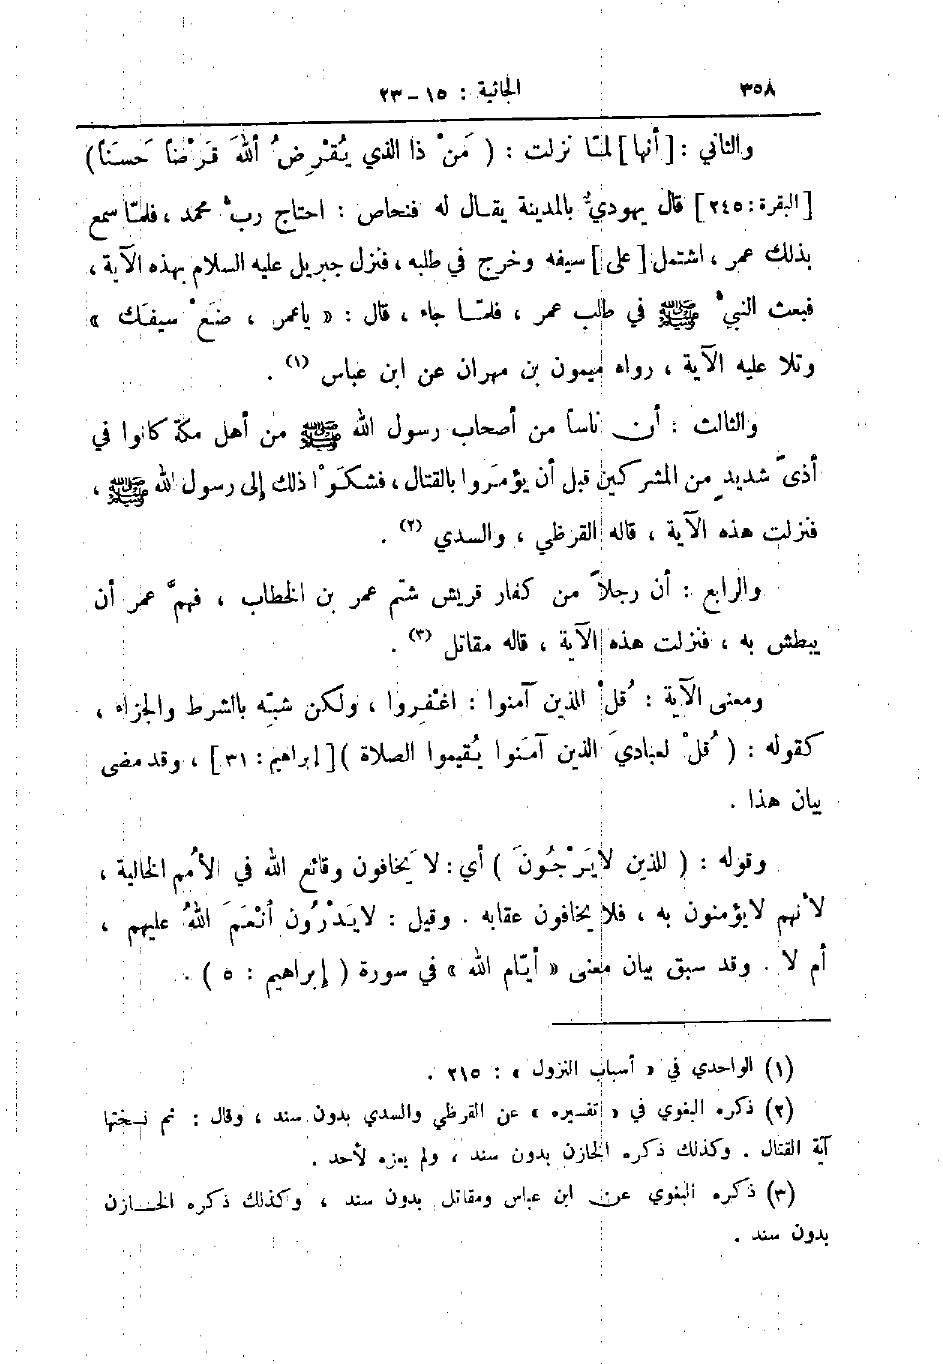 ٣٥٨ الجاثية : ١٥ - ٢٣
والثاني : [ أنها ] لمّا نزلت : ( مَنْ ذا الذي يُقْرِضُ اللهَ قَرْضاً حَسَناً )
[ البقرة : ٢٤٥ ] قال يهوديٌّ بالمدينة يقال له فنحاص : احتاج ربُّ محمد ، فلمّا سمع
بذلك عمر ، اشتمل [ على ] سيفه وخرج في طلبه ، فنزل جبريل عليه السلام بهذه الآية ،
فبعث النبيُّ ﷺ في طلب عمر ، فلمّا جاء ، قال : « ياعمر ، ضَعْ سيفَك »
وتلا عليه الآية ، رواه ميمون بن مهران عن ابن عباس (١) .
والثالث : أن ناساً من أصحاب رسول الله ﷺ من أهل مكّة كانوا في
أذىً شديدٍ من المشركين قبل أن يؤمَروا بالقتال ، فشكَوْا ذلك إلى رسول الله ﷺ ،
فنزلت هذه الآية ، قاله القرظي ، والسدي (٢) .
والرابع : أن رجلاً من كفار قريش شتم عمر بن الخطاب ، فهمَّ عمر أن
يبطش به ، فنزلت هذه الآية ، قاله مقاتل (٣) .
ومعنى الآية : قُلْ للذين آمنوا : اغْفِروا ، ولكن شبّه بالشرط والجزاء ،
كقوله : ( قُلْ لعباديَ الذين آمَنوا يُقيموا الصلاة ) [ إبراهيم : ٣١ ] ، وقد مضى
بيان هذا .
وقوله : ( للذين لايَرْجُونَ ) أي : لا يَخافون وقائع الله في الأُمم الخالية ،
لأنهم لايؤمنون به ، فلا يخافون عقابه . وقيل : لايَدْرُون أنْعَمَ اللهُ عليهم ،
أم لا . وقد سبق بيان معنى « أيّام الله » في سورة ( إبراهيم : ٥ ) .
(١) الواحدي في « أسباب النزول » : ٢١٥ .
(٢) ذكره البغوي في « تفسيره » عن القرظي والسدي بدون سند ، وقال : ثم نسختها
آية القتال . وكذلك ذكره الخازن بدون سند ، ولم يعزه لأحد .
(٣) ذكره البغوي عن ابن عباس ومقاتل بدون سند ، وكذلك ذكره الخازن
بدون سند .